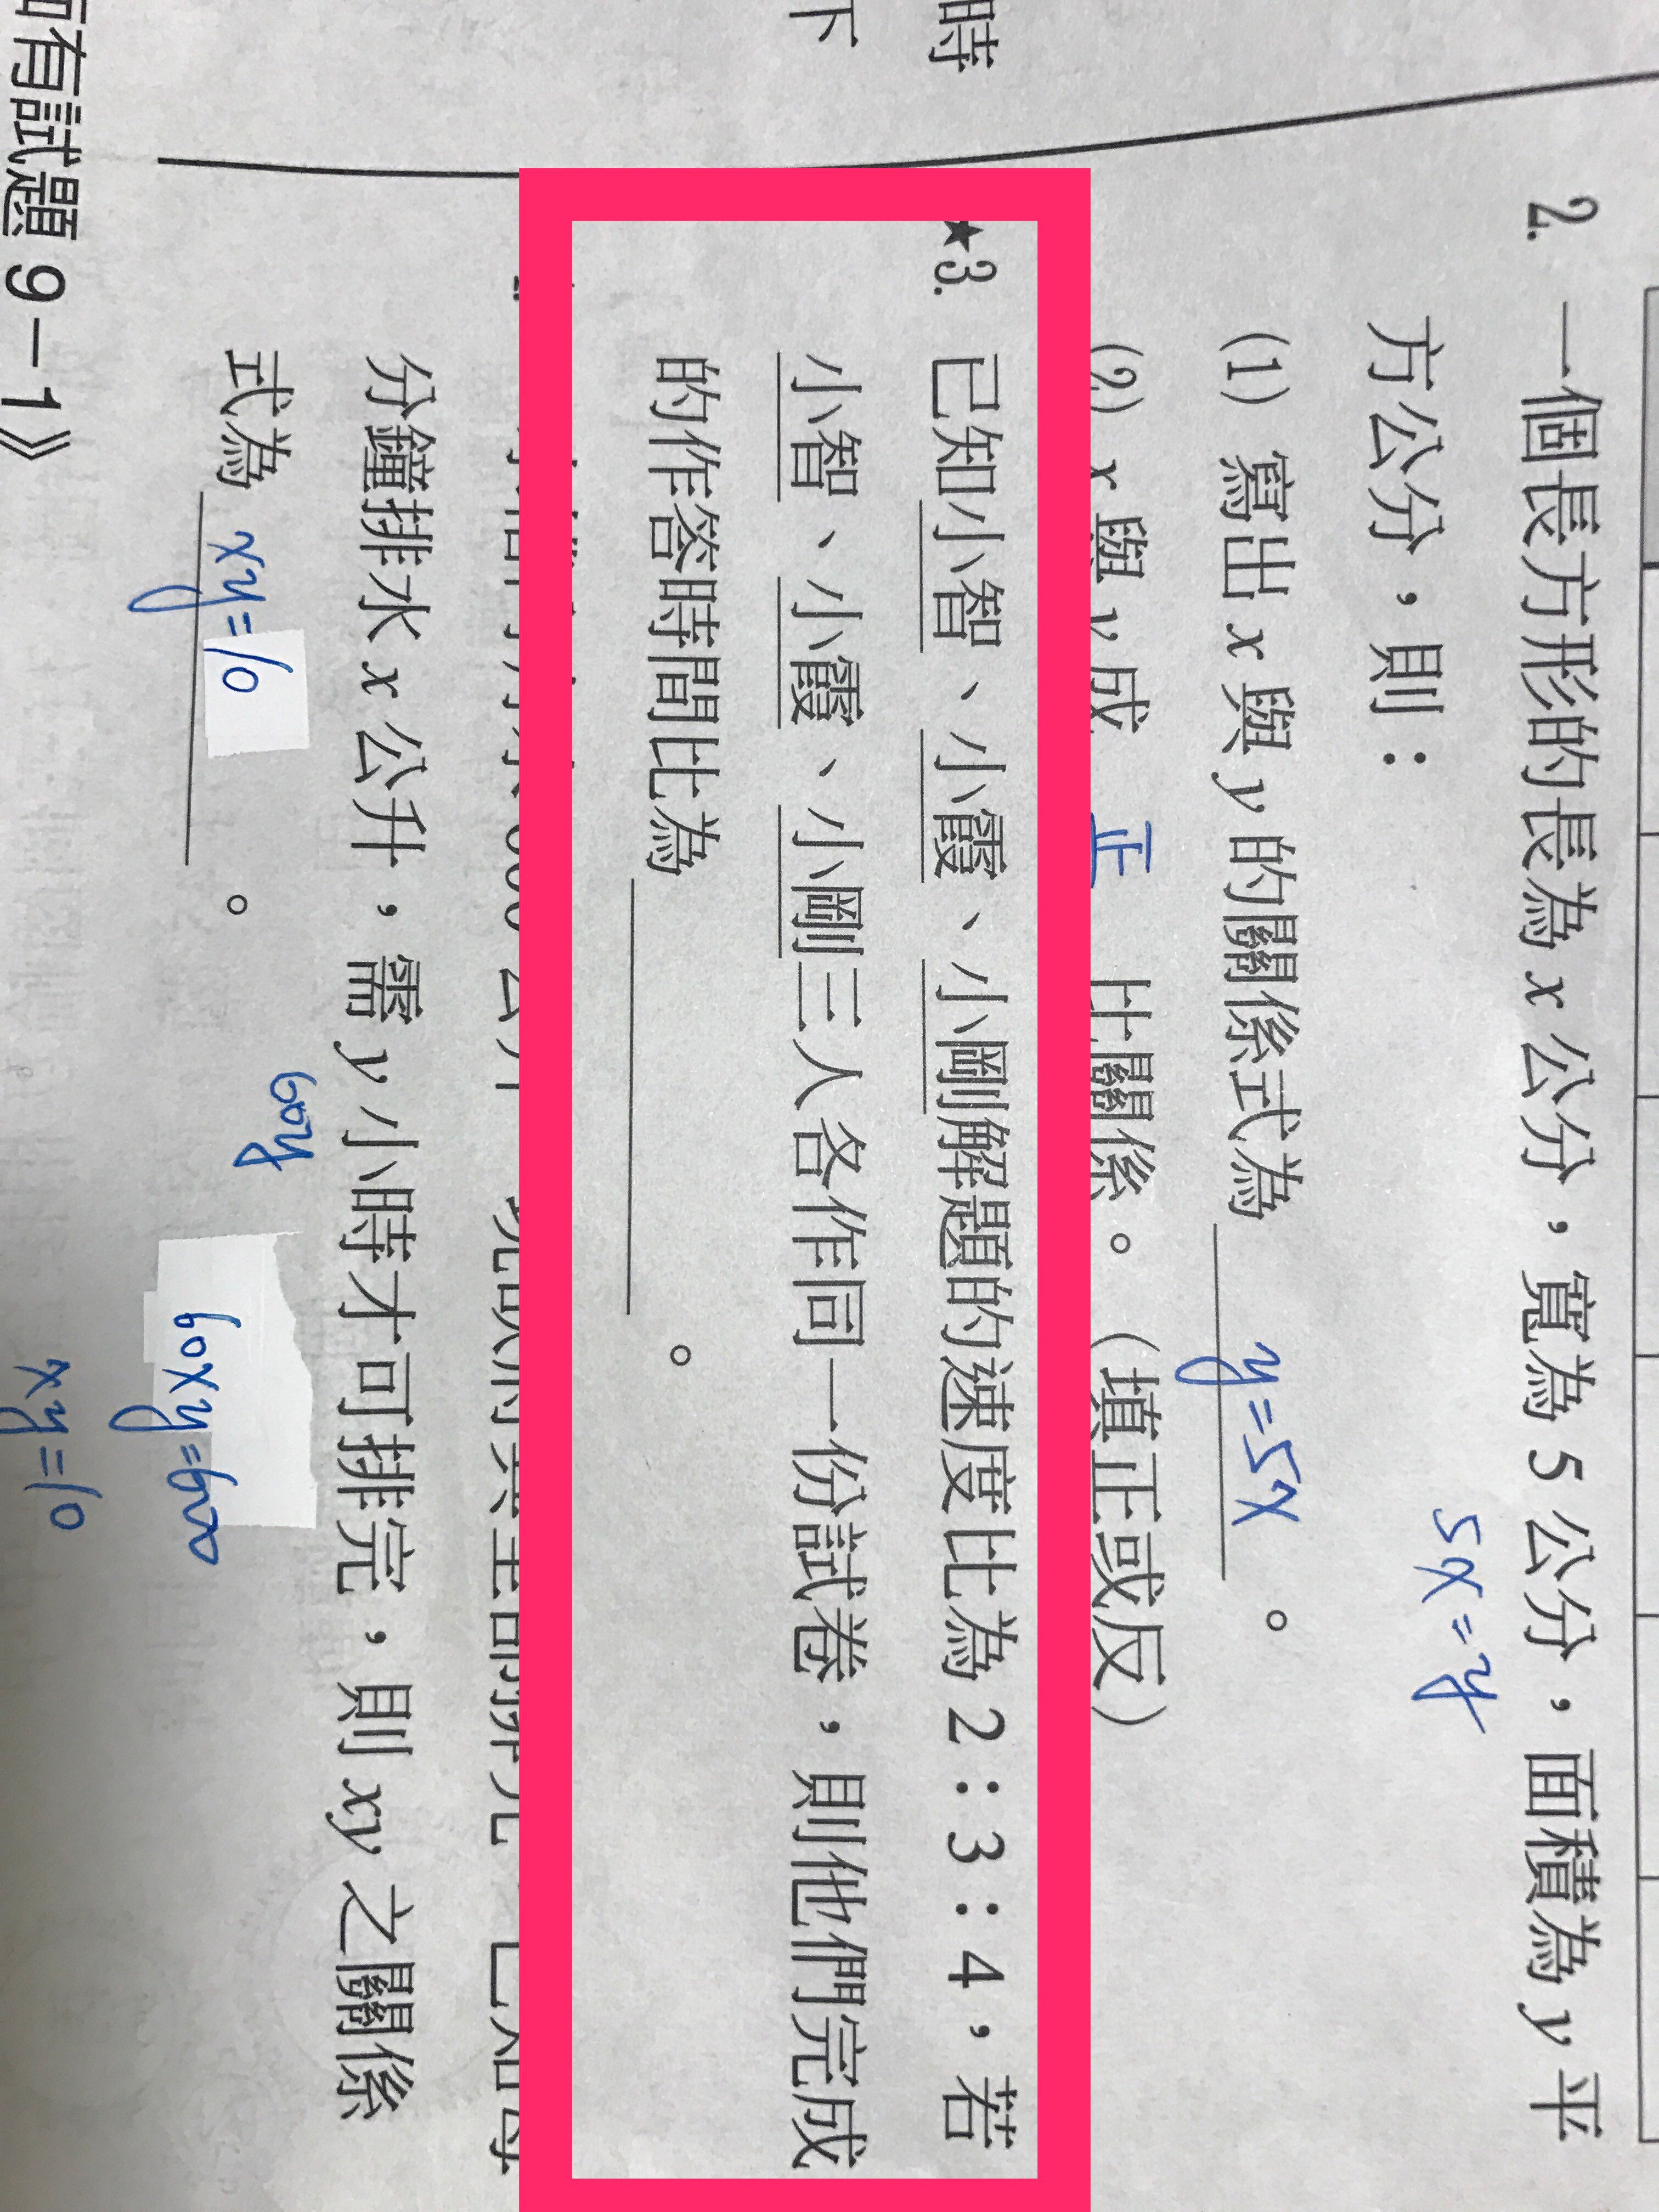 時
下
2. 一個長方形的長為 x 公分，寬為 5 公分，面積為 y 平
方公分，則：
5x=y
(1) 寫出 x 與 y 的關係式為 y=5x 。
(2) x 與 y 成 正 比關係。（填正或反）
★3. 已知小智、小霞、小剛解題的速度比為 2：3：4，若
小智、小霞、小剛三人各作同一份試卷，則他們完成
的作答時間比為 。
分鐘排水 x 公升，需 y 小時才可排完，則 xy 之關係
式為 xy=10 。
60y
60xy=600
xy=10
有試題 9－1》